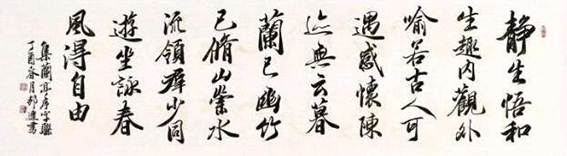 静生悟和
生趣内觀外
喻若古人可
遇感懷陳
迹無云暮
蘭已幽竹
已脩山崇水
流領羣少同
遊坐詠春
風得自由
集蘭亭序字聯
丁酉春月書